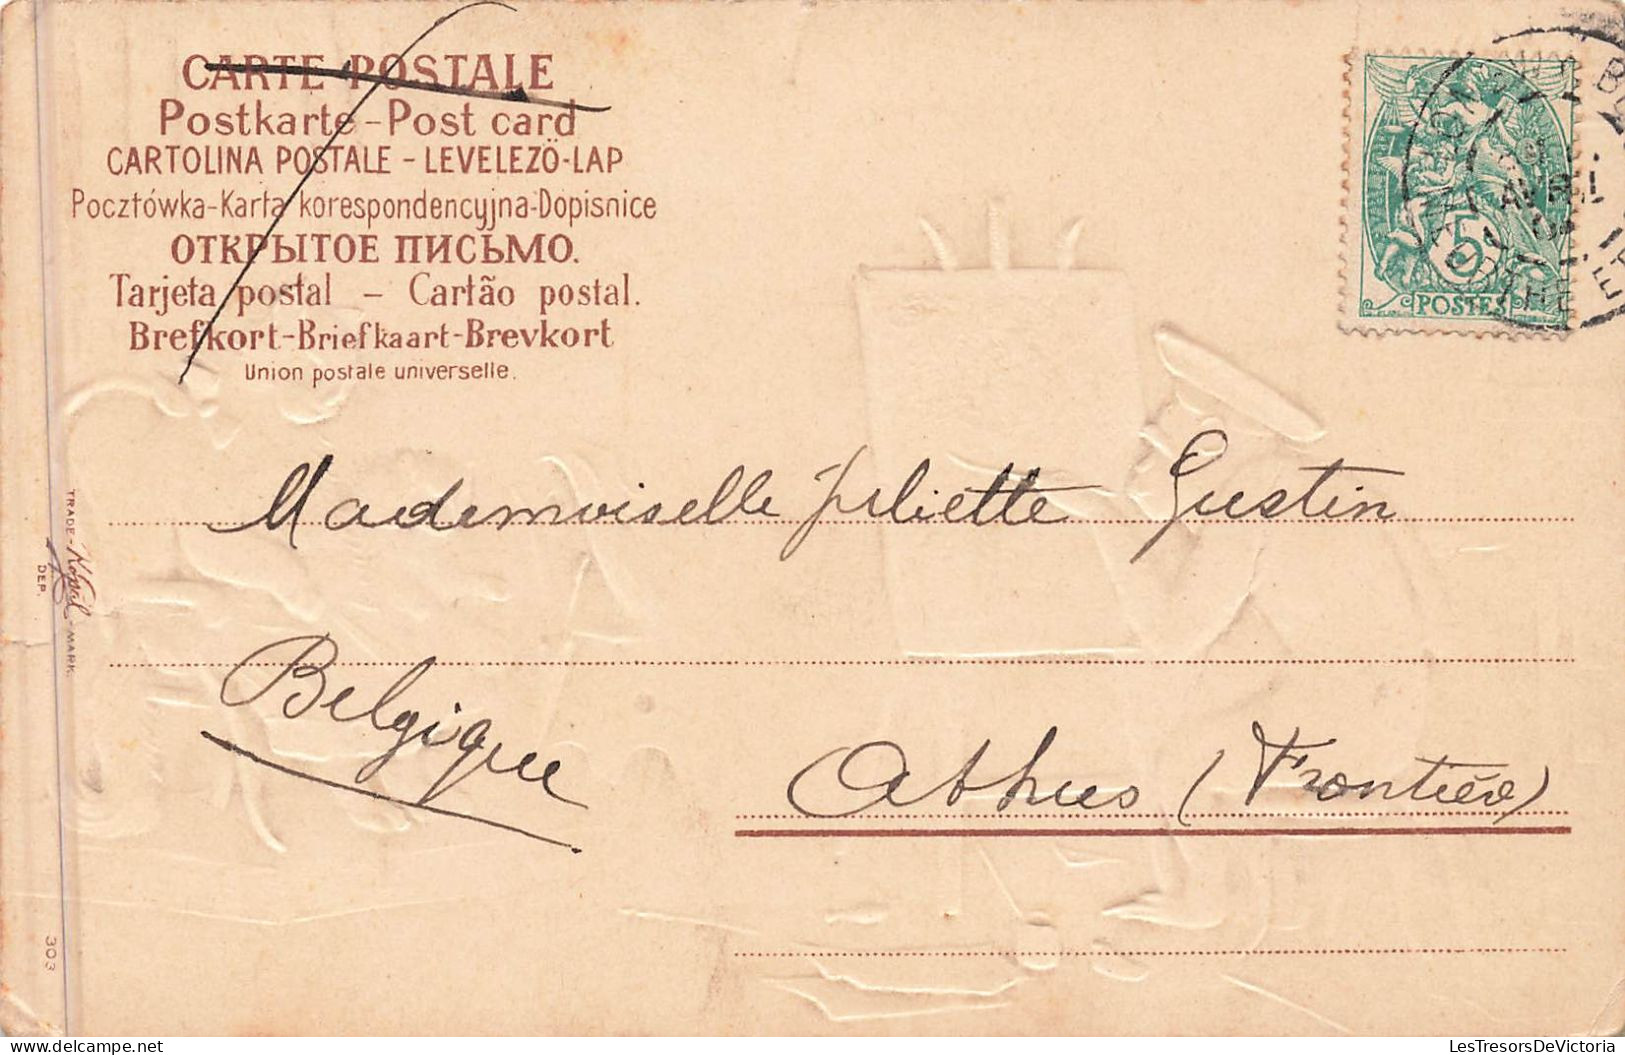 CARTE POSTALE
Postkarte - Post card
CARTOLINA POSTALE - LEVELEZÖ-LAP
Pocztówka-Karta korespondencyjna-Dopisnice
ОТКРЫТОЕ ПИСЬМО.
Tarjeta postal - Cartão postal.
Brefkort-Briefkaart-Brevkort
Union postale universelle.
5
POSTES
AVRIL
Mademoiselle Juliette Gustin
Belgique
Athus (Frontière)
TRADE- -MARK.
DEP.
303
LesTresorsDeVictoria